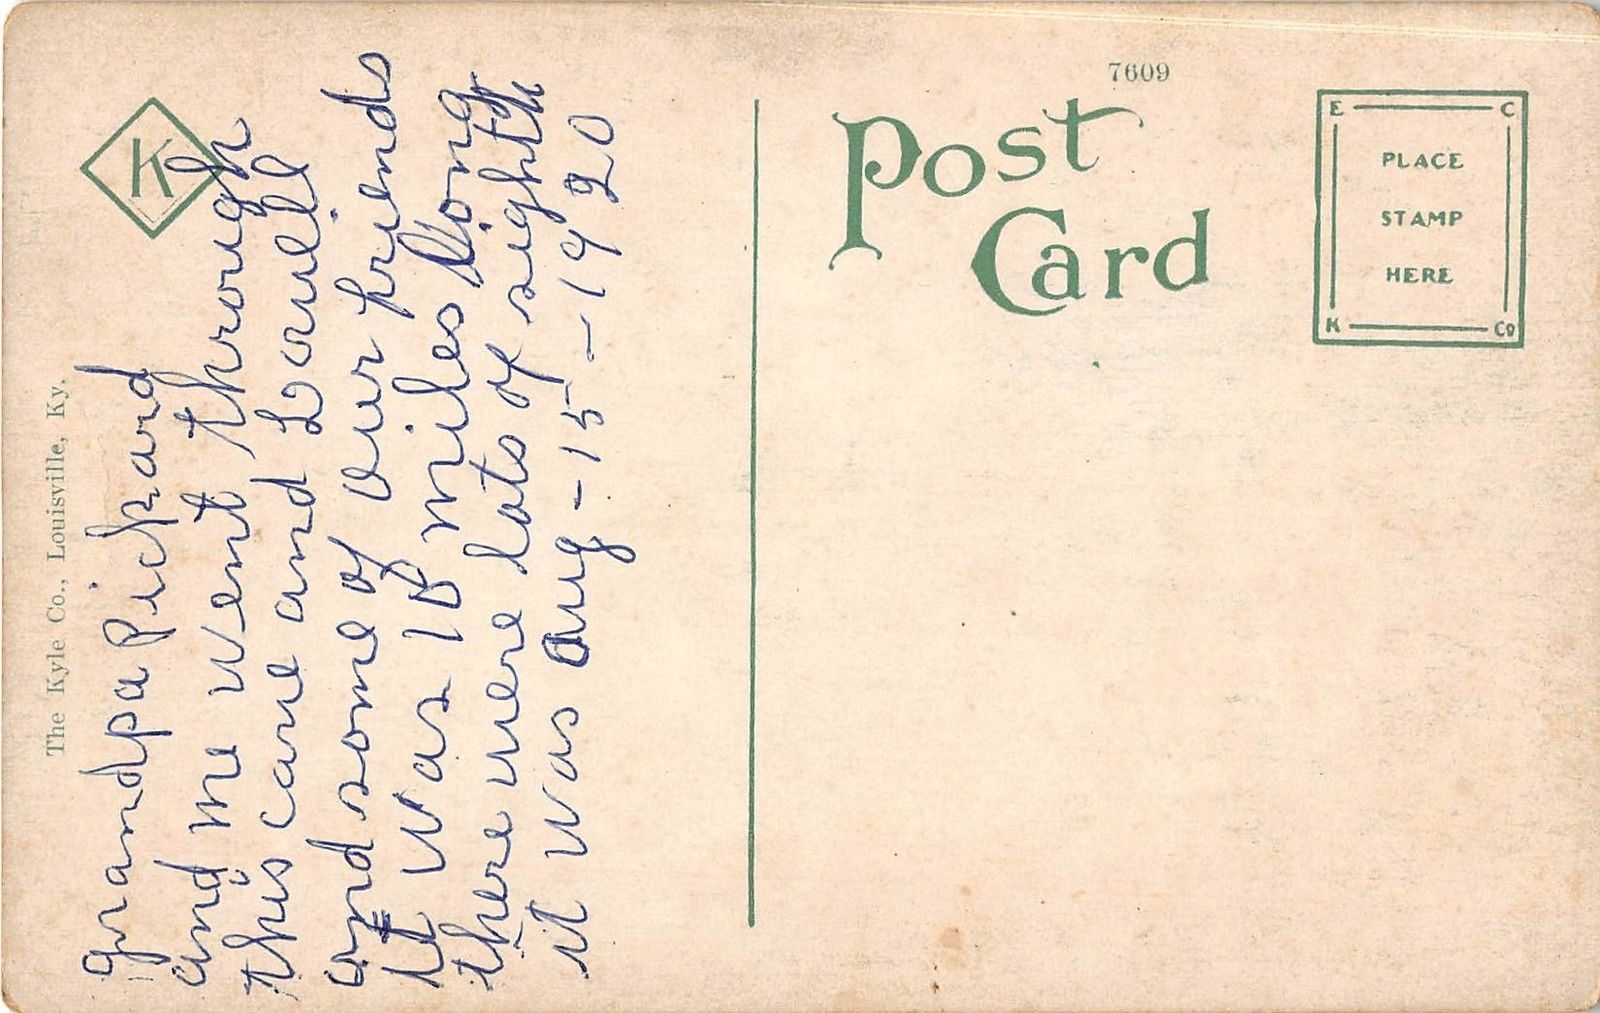 The Kyle Co., Louisville, Ky.
K
grandpa Pickard
and me went through
this cave and Louell
and some of our friends
it was 10 miles long
there were lots of sights
it was aug - 15 - 1920
7609
Post
Card
E C
PLACE
STAMP
HERE
K Co